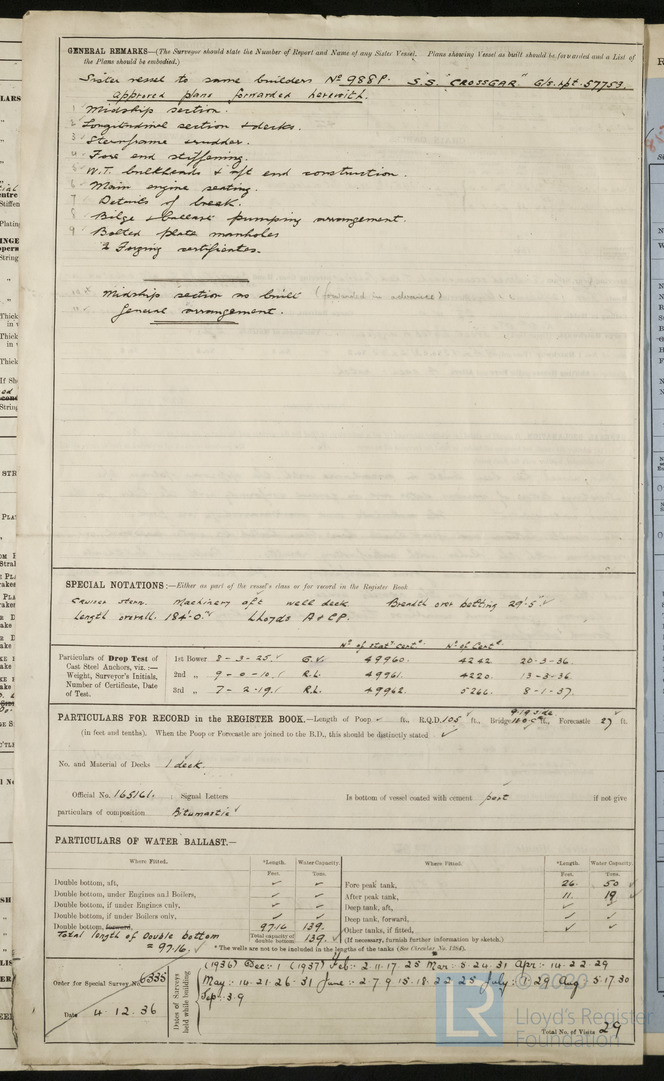 GENERAL REMARKS—(The Surveyor should state the Number of Report and Name of any Sister Vessel. Plans showing Vessel as built should be forwarded and a List of
the Plans should be embodied.)
Sister vessel to same builders No 988P. S.S. "CROSSGAR" G/s. rpt. 57753.
approved plans forwarded herewith.
1 Midship section.
2 Longitudinal section & decks.
3 Sternframe & rudder.
4 Fore end stiffening.
5 W.T. bulkheads & aft end construction.
6 Main engine seating.
7 Details of break.
8 Bilge & ballast pumping arrangement.
9 Bolted plate manholes
2 Forging certificates.
Midship section as built (forwarded in advance)
General arrangement.
SPECIAL NOTATIONS:—Either as part of the vessel's class or for record in the Register Book
Cruiser stern. Machinery aft well deck Breadth over belting 29'-5"
Length overall. 184'-0" Lloyds A & CP.
No of Stat. Cert. No of Cert.
Particulars of Drop Test of
Cast Steel Anchors, viz.:—
Weight, Surveyor's Initials,
Number of Certificate, Date
of Test.
1st Bower 8-3-25 49960. 4242 20-3-36.
2nd „ 9-0-10 R.L. 49961. 4220. 13-3-36
3rd „ 7-2-19 R.L. 49962. 5266. 8-1-37.
PARTICULARS FOR RECORD in the REGISTER BOOK.—Length of Poop ft., R.Q.D. 105 ft., Bridge ft., Forecastle 27 ft.
(in feet and tenths). When the Poop or Forecastle are joined to the B.D., this should be distinctly stated
No. and Material of Decks 1 deck.
Official No. 165161. ; Signal Letters Is bottom of vessel coated with cement part if not give
particulars of composition Bitumastic
PARTICULARS OF WATER BALLAST.—
Where Fitted. *Length. Water Capacity. Where Fitted. *Length. Water Capacity.
Feet. Tons. Feet. Tons.
Double bottom, aft, Fore peak tank, 26. 50
Double bottom, under Engines and Boilers, After peak tank, 11. 19
Double bottom, if under Engines only, Deep tank, aft,
Double bottom, if under Boilers only, Deep tank, forward,
Double bottom, forward, 97.16 139. Other tanks, if fitted,
Total length of Double bottom Total capacity of double bottom 139. (If necessary, furnish further information by sketch.)
= 97.16. * The wells are not to be included in the lengths of the tanks (See Circular No. 1284).
Order for Special Survey No. 6335
Date 4.12.36
Dates of Surveys held while building
(1936) Dec: 1 (1937) Feb: 2.11.17.25 Mar: 5.24.31 Apr: 14.22.29
May: 14.21.26.31 June: 2.7.9.15.18.22.25 July: 1.29 Aug 5.17.30
Sep: 3.9
Total No. of Visits 29
© 2020
LR
Lloyd's Register
Foundation